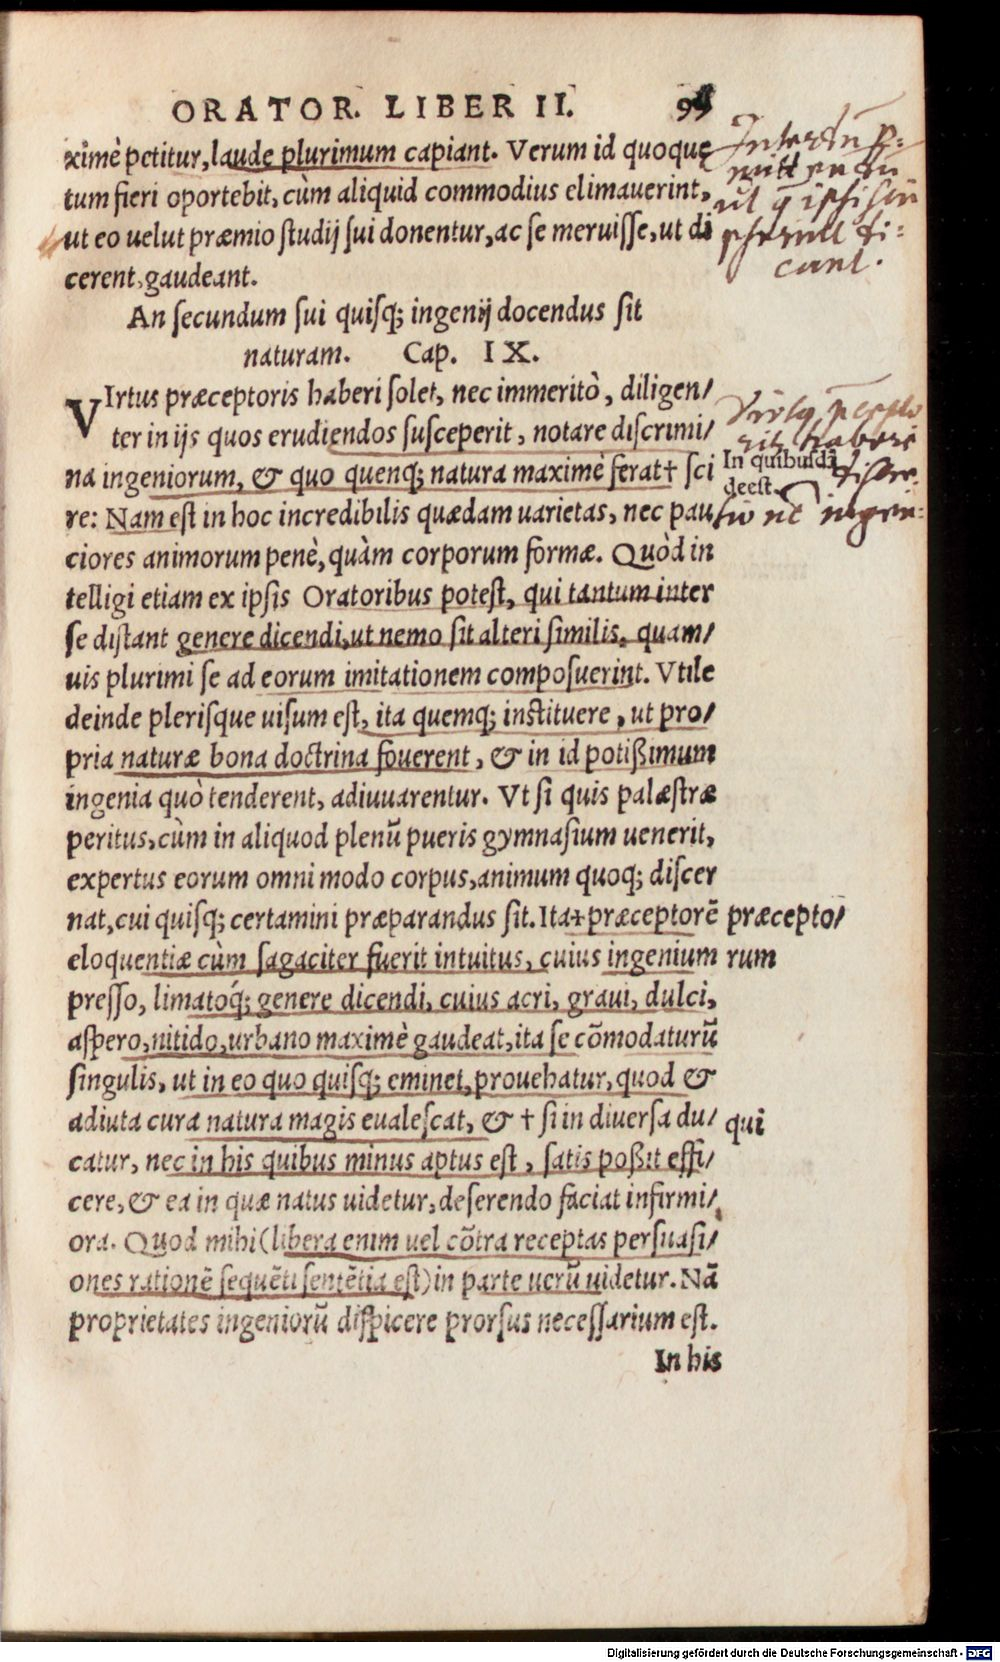 ORATOR. LIBER II. 95
ximè petitur, laude plurimum capiant. Verum id quoque
tum fieri oportebit, cùm aliquid commodius elimauerint,
ut eo uelut præmio studij sui donentur, ac se meruisse, ut di
cerent, gaudeant.
An secundum sui quisq; ingenij docendus sit
naturam. Cap. IX.
VIrtus præceptoris haberi solet, nec immeritò, diligen/
ter in ijs quos erudiendos susceperit, notare discrimi/
na ingeniorum, & quo quenq; natura maximè ferat† sci
re: Nam est in hoc incredibilis quædam uarietas, nec pau
ciores animorum penè, quàm corporum formæ. Quòd in
telligi etiam ex ipsis Oratoribus potest, qui tantum inter
se distant genere dicendi, ut nemo sit alteri similis, quam/
uis plurimi se ad eorum imitationem composuerint. Vtile
deinde plerisque uisum est, ita quemq; instituere, ut pro/
pria naturæ bona doctrina fouerent, & in id potißimum
ingenia quò tenderent, adiuuarentur. Vt si quis palæstræ
peritus, cùm in aliquod plenũ pueris gymnasium uenerit,
expertus eorum omni modo corpus, animum quoq; discer
nat, cui quisq; certamini præparandus sit. Ita† præceptorẽ
eloquentiæ cùm sagaciter fuerit intuitus, cuius ingenium
presso, limatoq́; genere dicendi, cuius acri, graui, dulci,
aspero, nitido, urbano maximè gaudeat, ita se cõmodaturũ
singulis, ut in eo quo quisq; eminet, prouehatur, quod &
adiuta cura natura magis eualescat, & † si in diuersa du/
catur, nec in his quibus minus aptus est, satis poßit effi/
cere, & ea in quæ natus uidetur, deserendo faciat infirmi/
ora. Quod mihi (libera enim uel cõtra receptas persuasi/
ones rationẽ sequẽti sentẽtia est) in parte uerũ uidetur. Nã
proprietates ingeniorũ dispicere prorsus necessarium est.
In his
ut
ipsi
cant.
haberi
In quibusdã
deest.
præcepto/
rum
qui
Digitalisierung gefördert durch die Deutsche Forschungsgemeinschaft - DFG